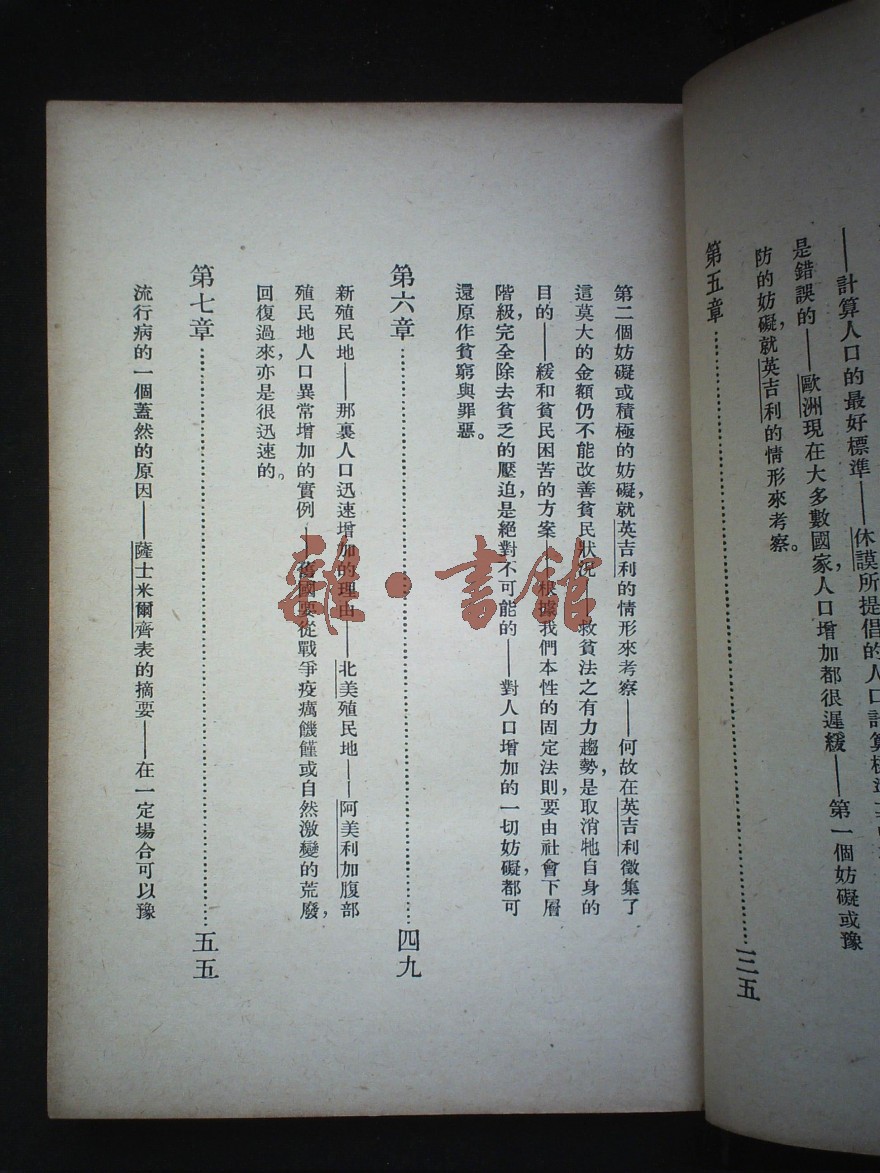 ——計算人口的最好標準——休謨所提倡的人口計算標準
是錯誤的——歐洲現在大多數國家，人口增加都很遲緩——第一個妨礙或豫
防的妨礙，就英吉利的情形來考察。
第五章……………………三五
第二個妨礙或積極的妨礙，就英吉利的情形來考察——何故在英吉利徵集了
這莫大的金額仍不能改善貧民狀況——救貧法之有力趨勢，是取消牠自身的
目的——緩和貧民困苦的方案——根據我們本性的固定法則，要由社會下層
階級，完全除去貧乏的壓迫，是絕對不可能的——對人口增加的一切妨礙，都可
還原作貧窮與罪惡。
第六章……………………四九
新殖民地——那裏人口迅速增加的理由——北美殖民地——阿美利加腹部
殖民地人口異常增加的實例——舊國要從戰爭疫癘饑饉或自然激變的荒廢，
回復過來，亦是很迅速的。
第七章……………………五五
流行病的一個蓋然的原因——薩士米爾齊表的摘要——在一定場合可以豫
雜·書館